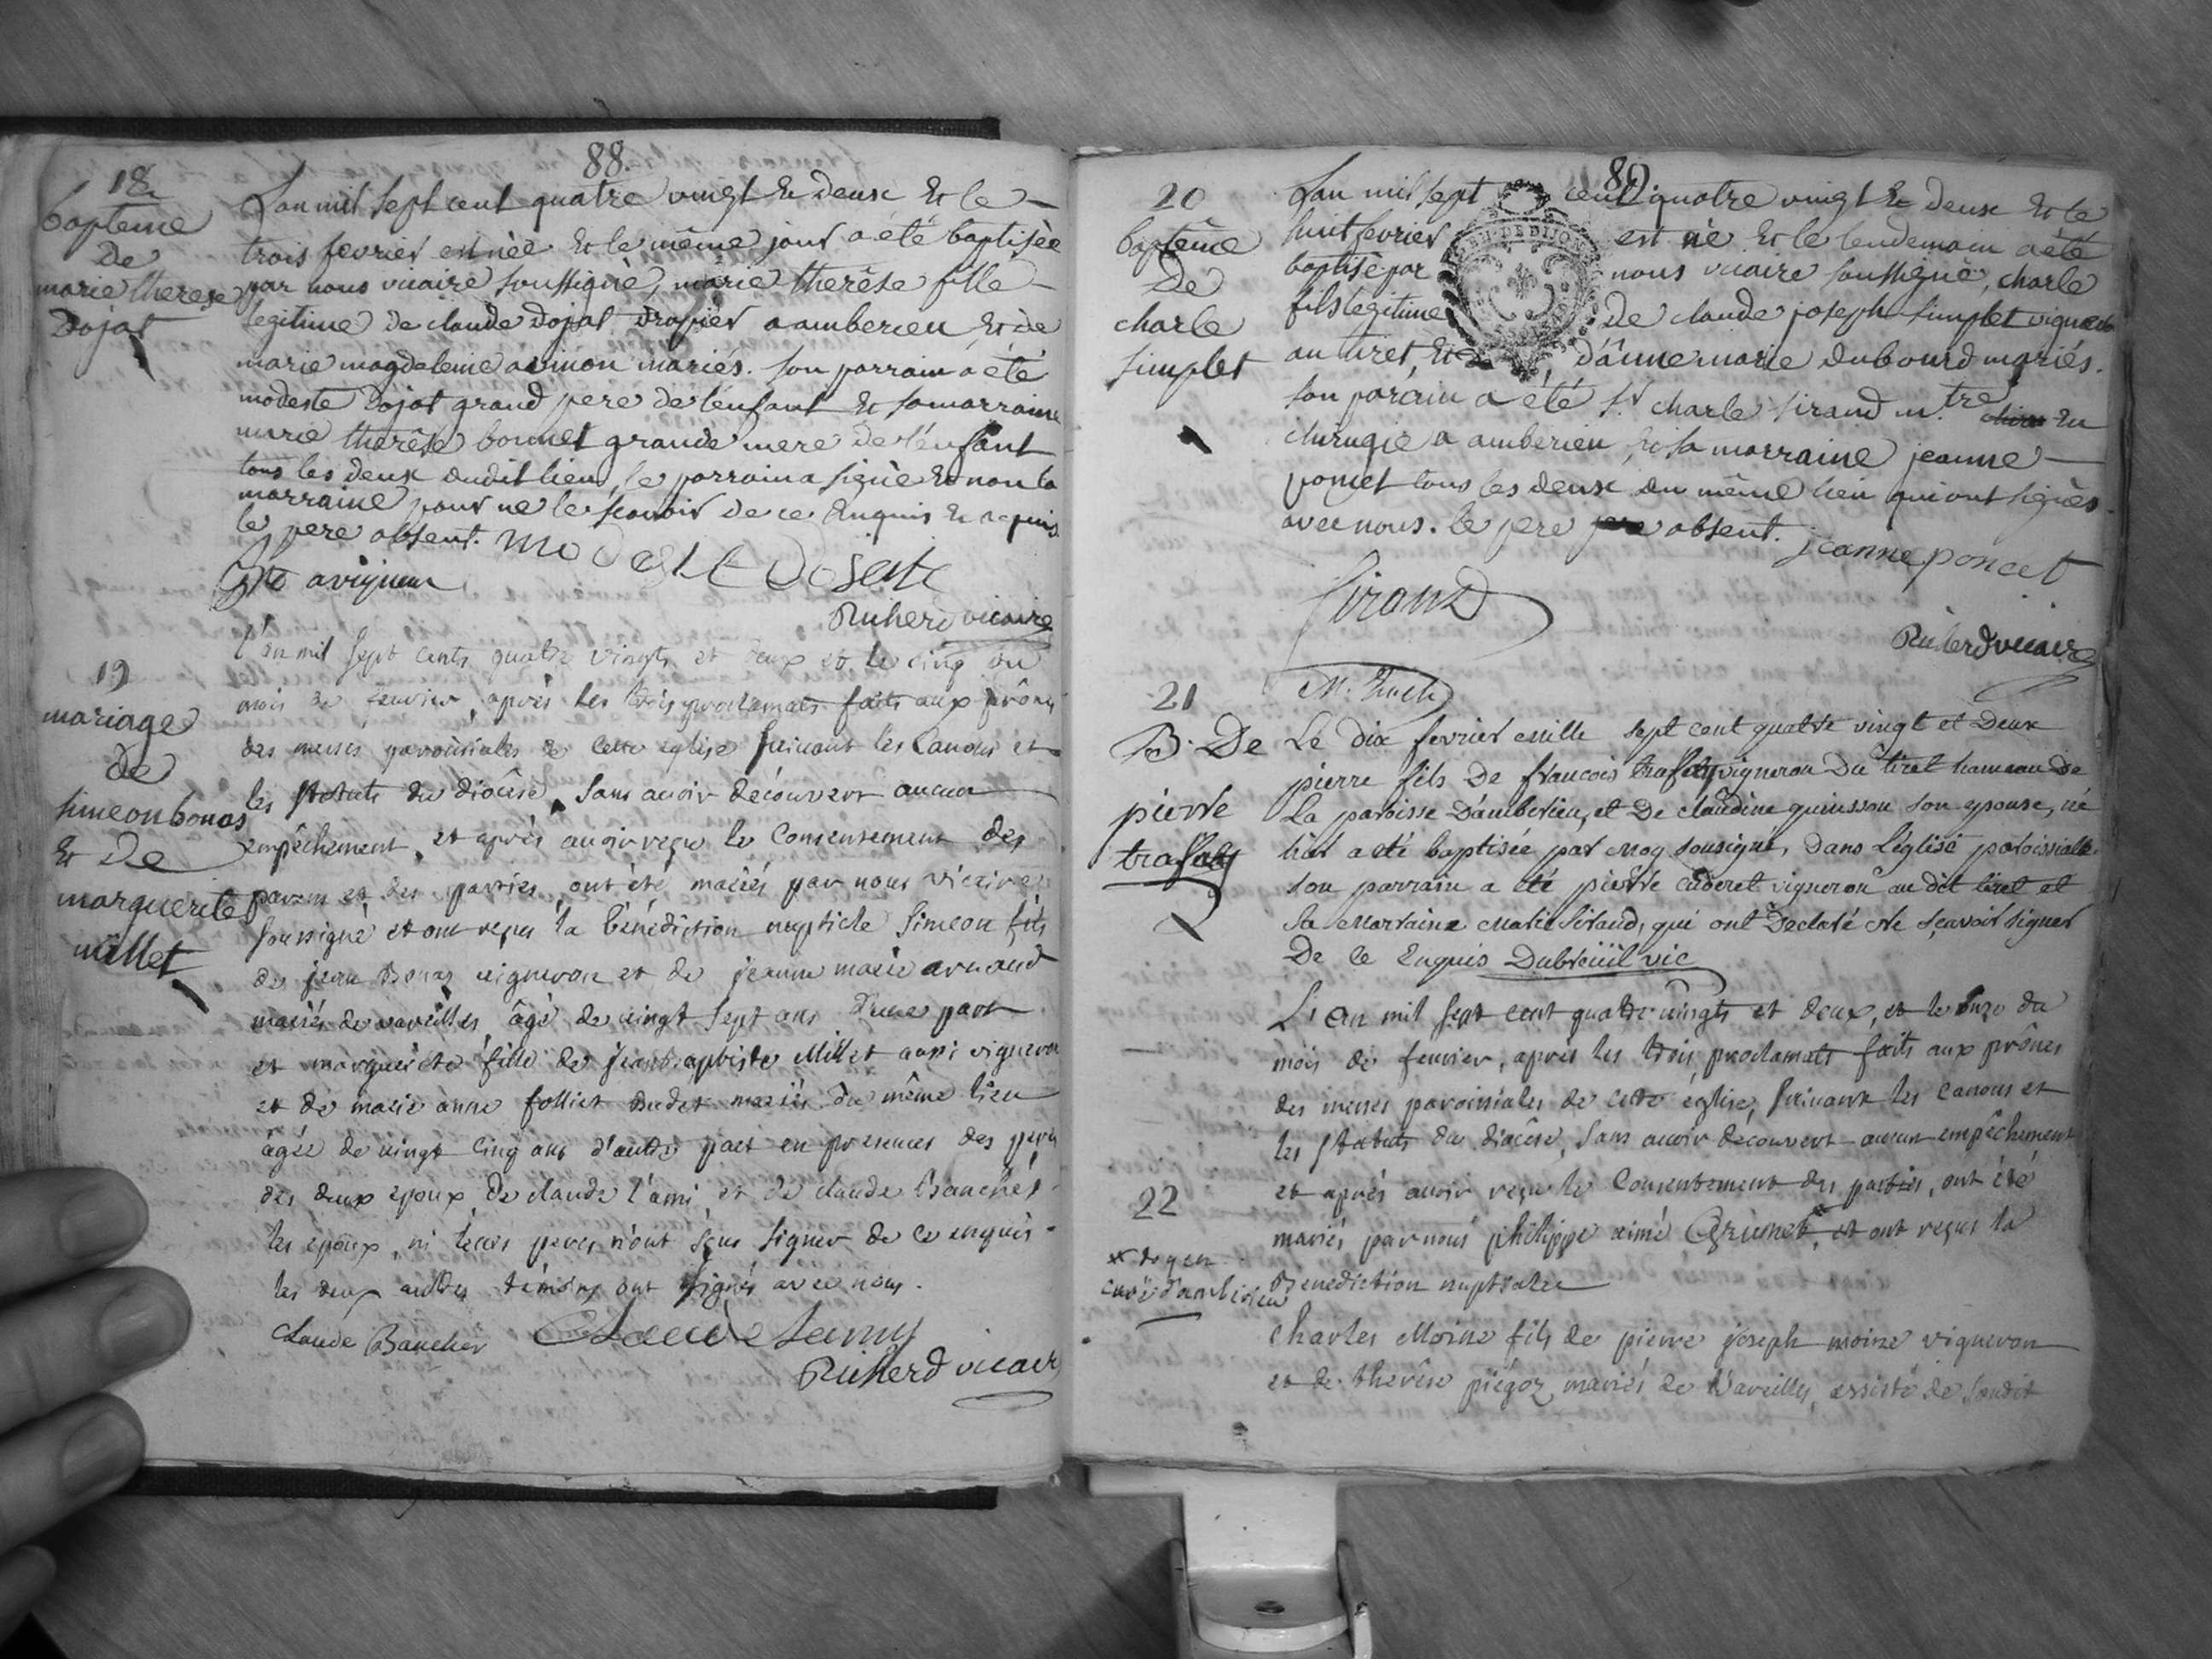 88.
18
bapteme
de
marie therese
Dojat
Lan mil sept cent quatre vingt & deux & le
trois fevrier est née & le même jour a été baptisée
par nous vicaire soussigné, marie therêse fille
legitime de claude dojat drapier a amberieu & de
marie magdeleine avinon mariés. son parrain a été
modeste Dojat grand pere de l'enfant & sa marraine
marie therêse bonnet grande mere de l'enfant
tous les deux dudit lieu, le parrain a signé & non la
marraine pour ne le scavoir de ce enquis & requis
le pere absent. modeste Dojat
avignon
Richerd vicaire
19
mariage
de
simeon bonas
& de
marguerite
millet
l'an mil sept cents quatre vingts et deux et le cinq du
mois de fevrier, après les trois proclamats faits aux prônes
des messes paroissiales de cette eglise suivant les Canons et
les statuts du diocèse, sans avoir découvert aucun
empêchement, et après avoir reçu le Consentement des
parens et des parties, ont été mariés par nous vicaire
soussigné et ont reçus la bénédiction nuptiale simeon fils
de jean Bonas vigneron et de jeanne marie arnaud
mariés de vareilles âgé de vingt sept ans d'une part
et marguerite fille de jean baptiste Millet aussi vigneron
et de marie anne folliet mariés du même lieu
âgée de vingt cinq ans d'autre part en presences des peres
des deux epoux, de claude l'ami et de claude Bancher
les epoux, ni leurs peres n'ont sçus signer de ce enquis
les deux autres témoins ont signés avec nous.
Claude Bancher Claude Lamy
Richerd vicaire
89
20
baptême
de
charle
simplet
Lan mil sept cent quatre vingt & deux & le
huit fevrier est né & le lendemain a été
baptisé par nous vicaire soussigné, charle
fils legitime de claude joseph simplet vigneron
au tiret, & d'anne marie dubourd mariés.
son parrain a été sr charle sirand m.tre en
chirugie a amberieu, & sa marraine jeanne
poncet tous les deux du même lieu qui ont signés
avec nous. le pere absent. jeanne poncet
Sirand
Richerd vicaire
21
B. De
pierre
trafay
Le dix fevrier mille sept cent quatre vingt et Deux
pierre fils De francois trafay vigneron Du tiret hameau de
La paroisse D'amberieu, et De claudine quinsson son epouse, né
hier a eté baptisée par moy sousigné, Dans L'église paroissialle.
son parrain a été pierre caderet vigneron au dit tiret et
sa Marraine Marie Sirand, qui ont Declaré Ne sçavoir signer
De ce Enquis Dubreüil vic
22
L'an mil sept cent quatre vingts et deux, et le onze du
mois de fevrier, après les trois proclamats faits aux prônes
des messes paroissiales de cette église, suivant les canons et
les statuts du diocèse, sans avoir découvert aucun empêchement
et après avoir reçu le Consentement des parties, ont été
mariés par nous philippe aimé Grumet, et ont reçus la
Benediction nuptiale
x doyen
curé d'amberieu
Charles Moine fils de pierre joseph moine vigneron
et de therêse piégoz mariés de Vareilles, assisté de sondit